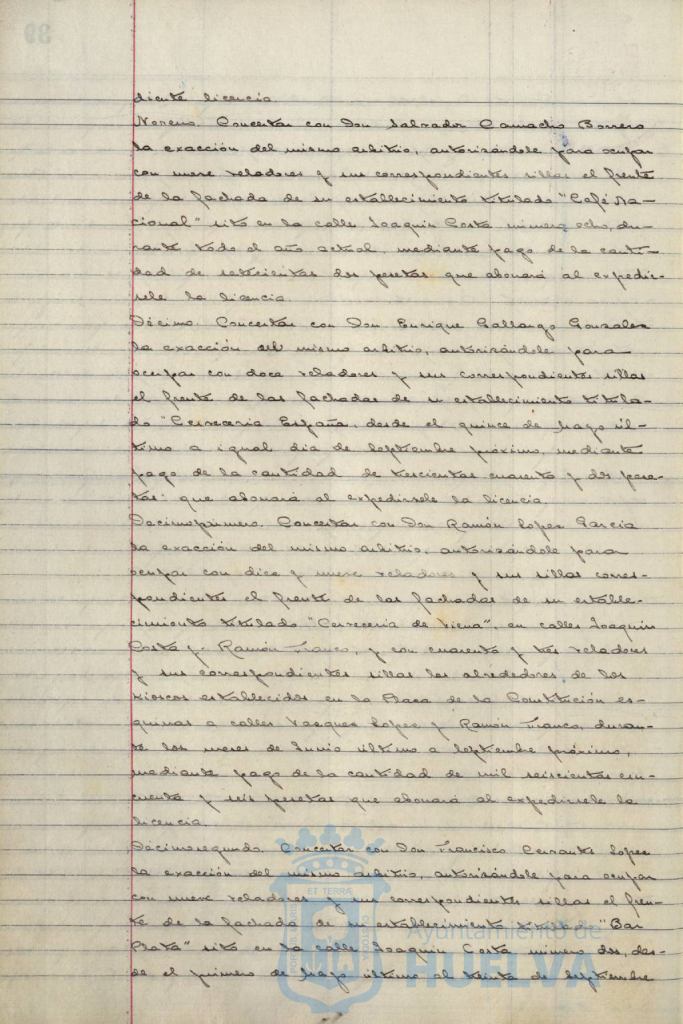 diente licencia.
Noveno. Concertar con Don Salvador Camacho Borrero
la exacción del mismo arbitrio, autorizándole para ocupar
con nueve veladores y sus correspondientes sillas el frente
de la fachada de su establecimiento titulado "Café Na-
cional" sito en la calle Joaquín Costa número ocho, du-
rante todo el año actual, mediante pago de la canti-
dad de setecientas dos pesetas que abonará al expedir-
sele la licencia.
Décimo. Concertar con Don Enrique Gallango Gonzalez
la exacción del mismo arbitrio, autorizándole para
ocupar con doce veladores y sus correspondientes sillas
el frente de las fachadas de su establecimiento titula-
do "Cerveceria España, desde el quince de Mayo úl-
timo a igual dia de Septiembre próximo, mediante
pago de la cantidad de trescientas cuarenta y dos pese-
tas: que abonará al expedirsele la licencia.
Decimoprimero. Concertar con Don Ramón Lopez García
la exacción del mismo arbitrio, autorizándole para
ocupar con diez y nueve veladores y sus sillas corres-
pondientes el frente de las fachadas de su estable-
cimiento titulado "Cerveceria de Viena", en calles Joaquin
Costa y Ramón Franco, y con cuarenta y tres veladores
y sus correspondientes sillas los alrededores de los
kioscos establecidos en la Plaza de la Constitución es-
quinas a calles Vazquez Lopez y Ramón Franco, duran-
te los meses de Junio último a Septiembre próximo,
mediante pago de la cantidad de mil seiscientas cin-
cuenta y seis pesetas que abonará al expedirsele la
licencia.
Décimosegundo. Concertar con Don Francisco Lopez
la exacción del mismo arbitrio, autorizándole para ocupar
con nueve veladores y sus correspondientes sillas el fren-
te de la fachada de su establecimiento titulado "Bar
Plata" sito en la calle Joaquin Costa número dos, des-
de el primero de Mayo último al treinta de Septiembre
ET TERRÆ
Ayuntamiento de
HUELVA